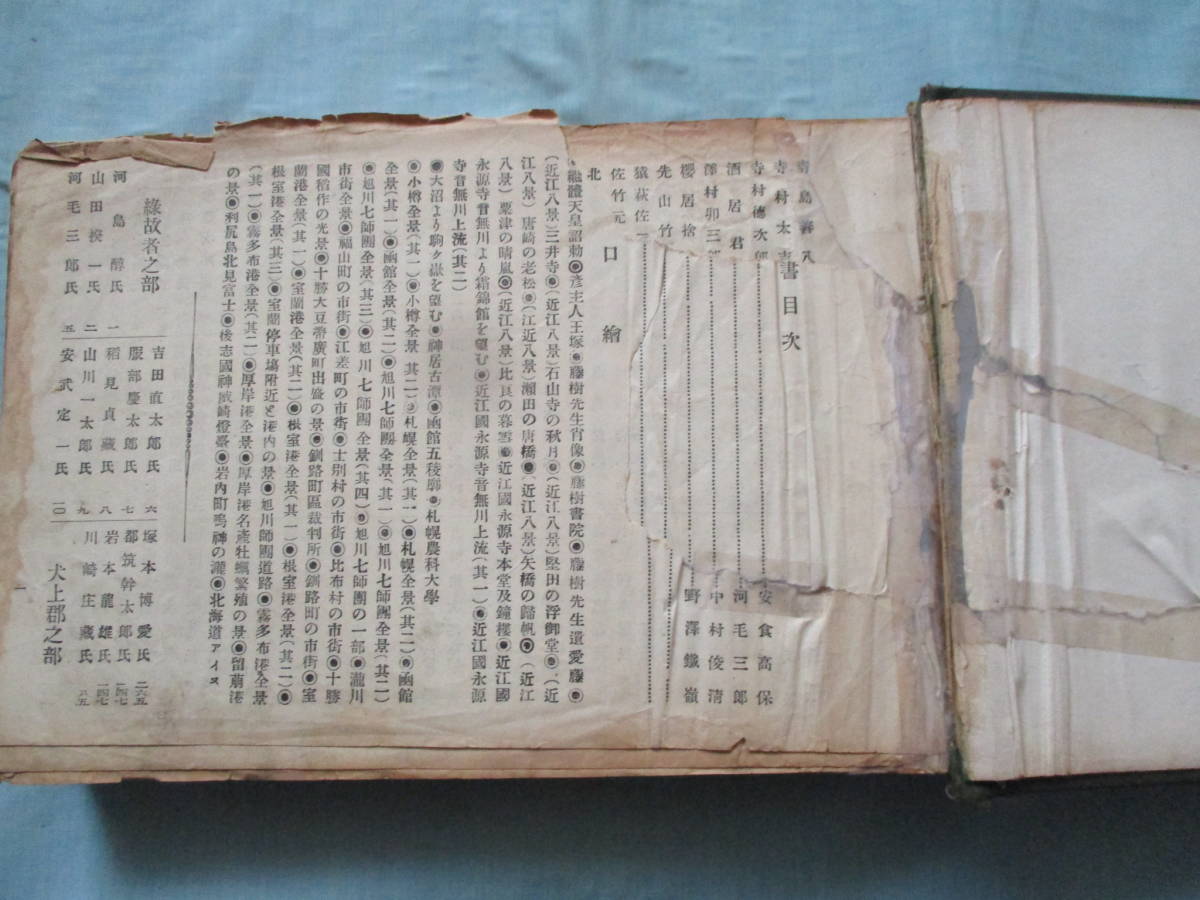 書目次
寺村太
寺村德次郎
酒居君
澤村卯三郎
櫻居捨
先山竹
猿荻佐一
佐竹元
北
安食高保
河毛三郎
中村俊淸
野澤鐵嶺
口繪
繼體天皇詔勅◉彦主人王塚◉藤樹先生肖像◉藤樹書院◉藤樹先生遺愛藤◉
(近江八景)三井寺◉(近江八景)石山寺の秋月◉(近江八景)堅田の浮御堂◉(近
江八景)唐崎の老松◉(江近八景)瀨田の唐橋◉(近江八景)矢橋の歸帆◉(近江
八景)粟津の晴嵐◉(近江八景)比良の暮雪◉近江國永源寺本堂及鐘樓◉近江國
永源寺音無川より霜錦館を望む◉近江國永源寺音無川上流(其一)◉近江國永源
寺音無川上流(其二)
◉大沼より駒ケ嶽を望む◉神居古潭◉函館五稜廓◉札幌農科大學
◉小樽全景(其一)◉小樽全景(其二)◉札幌全景(其一)◉札幌全景(其二)◉函館
全景(其一)◉函館全景(其二)◉旭川七師團全景(其一)◉旭川七師團全景(其二)
◉旭川七師團全景(其三)◉旭川七師團全景(其四)◉旭川七師團の一部◉瀧川
市街全景◉福山町の市街◉江差町の市街◉士別村の市街◉比布村の市街◉十勝
國稻作の光景◉十勝大豆帶廣町出盛の景◉釧路町區裁判所◉釧路町の市街◉室
蘭港全景(其一)◉室蘭港全景(其二)◉根室港全景(其一)◉根室港全景(其二)◉
根室港全景(其三)◉室蘭停車塲附近と港内の景◉旭川師團道路◉霧多布港全景
(其一)◉霧多布港全景(其二)◉厚岸港全景◉厚岸港名產牡蠣繁殖の景◉留萠港
の景◉利尻島北見富士◉後志國神威崎燈臺◉岩内町鳴神の瀧◉北海道アイヌ
緣故者之部
河島醇氏 一
山田揆一氏 二
河毛三郎氏 五
吉田直太郎氏 六
服部慶太郎氏 七
稻見貞藏氏 八
山川一太郎氏 九
安武定一氏 一〇
塚本博愛氏 二六五
都筑幹太郎氏 二四七
岩本龍雄氏 一四七
川崎庄藏氏 八五
犬上郡之部
一